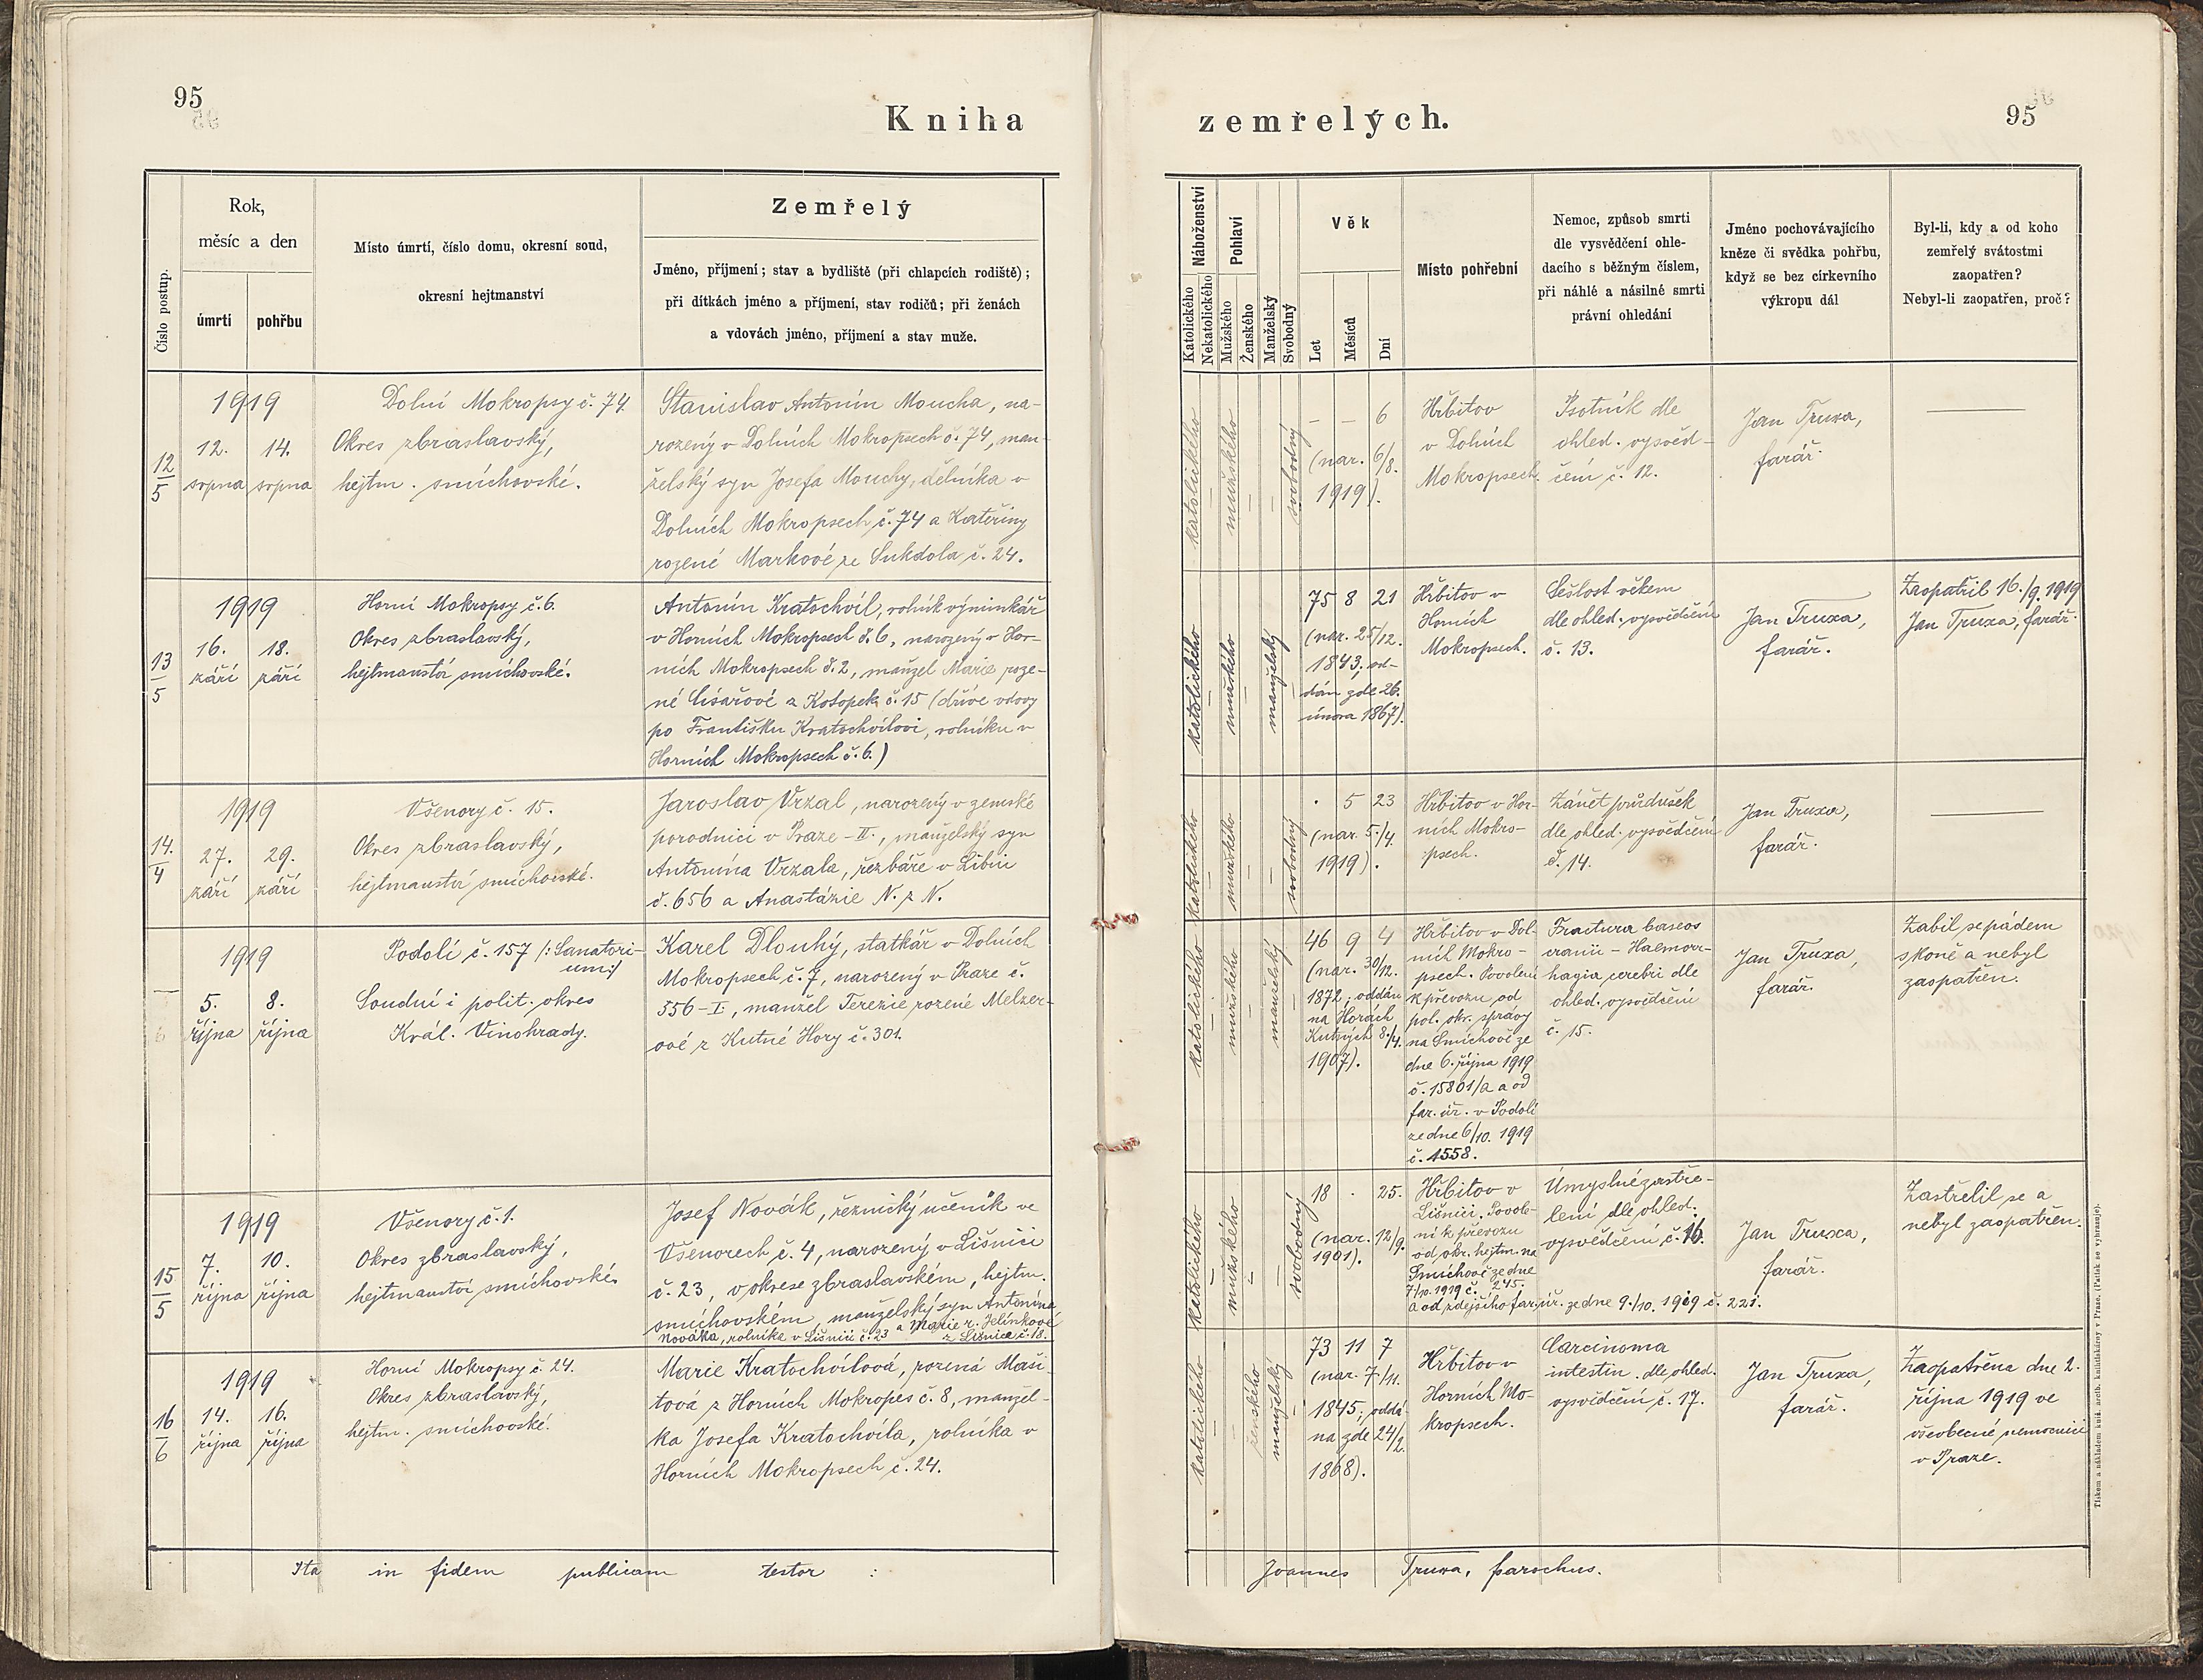 95
Kniha
Číslo postup.
Rok,
měsíc a den
úmrtí
pohřbu
Místo úmrtí, číslo domu, okresní soud,
okresní hejtmanství
Zemřelý
Jméno, příjmení; stav a bydliště (při chlapcích rodiště);
při dítkách jméno a příjmení, stav rodičů; při ženách
a vdovách jméno, příjmení a stav muže.
12
5
1919
12. srpna
14. srpna
Dolní Mokropsy č. 74
Okres zbraslavský,
hejtm. smíchovské.
Stanislav Antonín Moucha, na-
rozený v Dolních Mokropsech č. 74, man-
želský syn Josefa Mouchy, dělníka v
Dolních Mokropsech č. 74 a Kateřiny
rozené Markové ze Sukdola č. 24.
13
5
1919
16. září
18. září
Horní Mokropsy č. 6.
Okres zbraslavský,
hejtmanství smíchovské.
Antonín Kratochvíl, rolník výminkář
v Horních Mokropsech č. 6, narozený v Hor-
ních Mokropsech č. 2, manžel Marie roze-
né Císařové z Kosopek č. 15 (dříve vdovy
po Františku Kratochvílovi, rolníku v
Horních Mokropsech č. 6.)
14.
4
1919
27. září
29. září
Všenory č. 15.
Okres zbraslavský,
hejtmanství smíchovské.
Jaroslav Vrzal, narozený v zemské
porodnici v Praze-II., manželský syn
Antonína Vrzala, řezbáře v Libni
č. 656 a Anastázie N. z N.
—
6
1919
5. října
8. října
Podolí č. 157 /: Sanatori-
um :/
Soudní i polit. okres
Král. Vinohrady.
Karel Dlouhý, statkář v Dolních
Mokropsech č. 7, narozený v Praze č.
556-I., manžel Terezie rozené Melzer-
ové z Kutné Hory č. 301.
15
5
1919
7. října
10. října
Všenory č. 1.
Okres zbraslavský,
hejtmanství smíchovské.
Josef Novák, řeznický učeník ve
Všenorech č. 4, narozený v Lišnici
č. 23, v okrese zbraslavském, hejtm.
smíchovském, manželský syn Antonína
Nováka, rolníka v Lišnici č. 23 a Marie r. Jelínkové
z Lišnice č. 18.
16
6
1919
14. října
16. října
Horní Mokropsy č. 24.
Okres zbraslavský,
hejtm. smíchovské.
Marie Kratochvílová, rozená Maši-
tová z Horních Mokropes č. 8, manžel-
ka Josefa Kratochvíla, rolníka v
Horních Mokropsech č. 24.
Ita in fidem publicam testor :
zemřelých.
95
Náboženství
Katolického
Nekatolického
Pohlaví
Mužského
Ženského
Manželský
Svobodný
Věk
Let
Měsíců
Dní
Místo pohřební
Nemoc, způsob smrti
dle vysvědčení ohle-
dacího s běžným číslem,
při náhlé a násilné smrti
právní ohledání
Jméno pochovávajícího
kněze či svědka pohřbu,
když se bez církevního
výkropu dál
Byl-li, kdy a od koho
zemřelý svátostmi
zaopatřen?
Nebyl-li zaopatřen, proč?
katolického
mužského
svobodný
— — 6
(nar. 6/8.
1919).
Hřbitov
v Dolních
Mokropsech.
Psotník dle
ohled. vysvěd-
čení č. 12.
Jan Truxa,
farář.
—
katolického
mužského
manželský
75 8 21
(nar. 25/12.
1843; od-
dán zde 26.
února 1867).
Hřbitov v
Horních
Mokropsech.
Sešlost věkem
dle ohled. vysvědčení
č. 13.
Jan Truxa,
farář.
Zaopatřil 16./9. 1919
Jan Truxa, farář.
katolického
mužského
svobodný
. 5 23
(nar. 5./4.
1919).
Hřbitov v Hor-
ních Mokro-
psech.
Zánět průdušek
dle ohled. vysvědčení
č. 14.
Jan Truxa,
farář.
—
katolického
mužského
manželský
46 9 4
(nar. 30/12.
1872; oddán
na Horách
Kutných 8./4.
1907).
Hřbitov v Dol-
ních Mokro-
psech. Povolení
k převozu od
pol. okr. správy
na Smíchově ze
dne 6. října 1919
č. 15801/a a od
far. úř. v Podolí
ze dne 6/10. 1919
č. 1558.
Fractura baseos
cranii - Haemorr-
hagia cerebri dle
ohled. vysvědčení
č. 15.
Jan Truxa,
farář.
Zabil se pádem
s koně a nebyl
zaopatřen.
katolického
mužského
svobodný
18 . 25.
(nar. 12/9.
1901).
Hřbitov v
Lišnici. Povole-
ní k převozu
od okr. hejtm. na
Smíchově ze dne
7/10. 1919 č. 245.
a od zdejšího far. úř. ze dne 9./10. 1919 č. 221.
Úmyslné zastře-
lení dle ohled.
vysvědčení č. 16.
Jan Truxa,
farář.
Zastřelil se a
nebyl zaopatřen.
katolického
ženského
manželský
73 11 7
(nar. 7/11.
1845, oddá
na zde 24/2.
1868).
Hřbitov v
Horních Mo-
kropsech.
Carcinoma
intestin. dle ohled.
vysvědčení č. 17.
Jan Truxa,
farář.
Zaopatřena dne 2.
října 1919 ve
všeobecné nemocnici
v Praze.
Joannes Truxa, parochus.